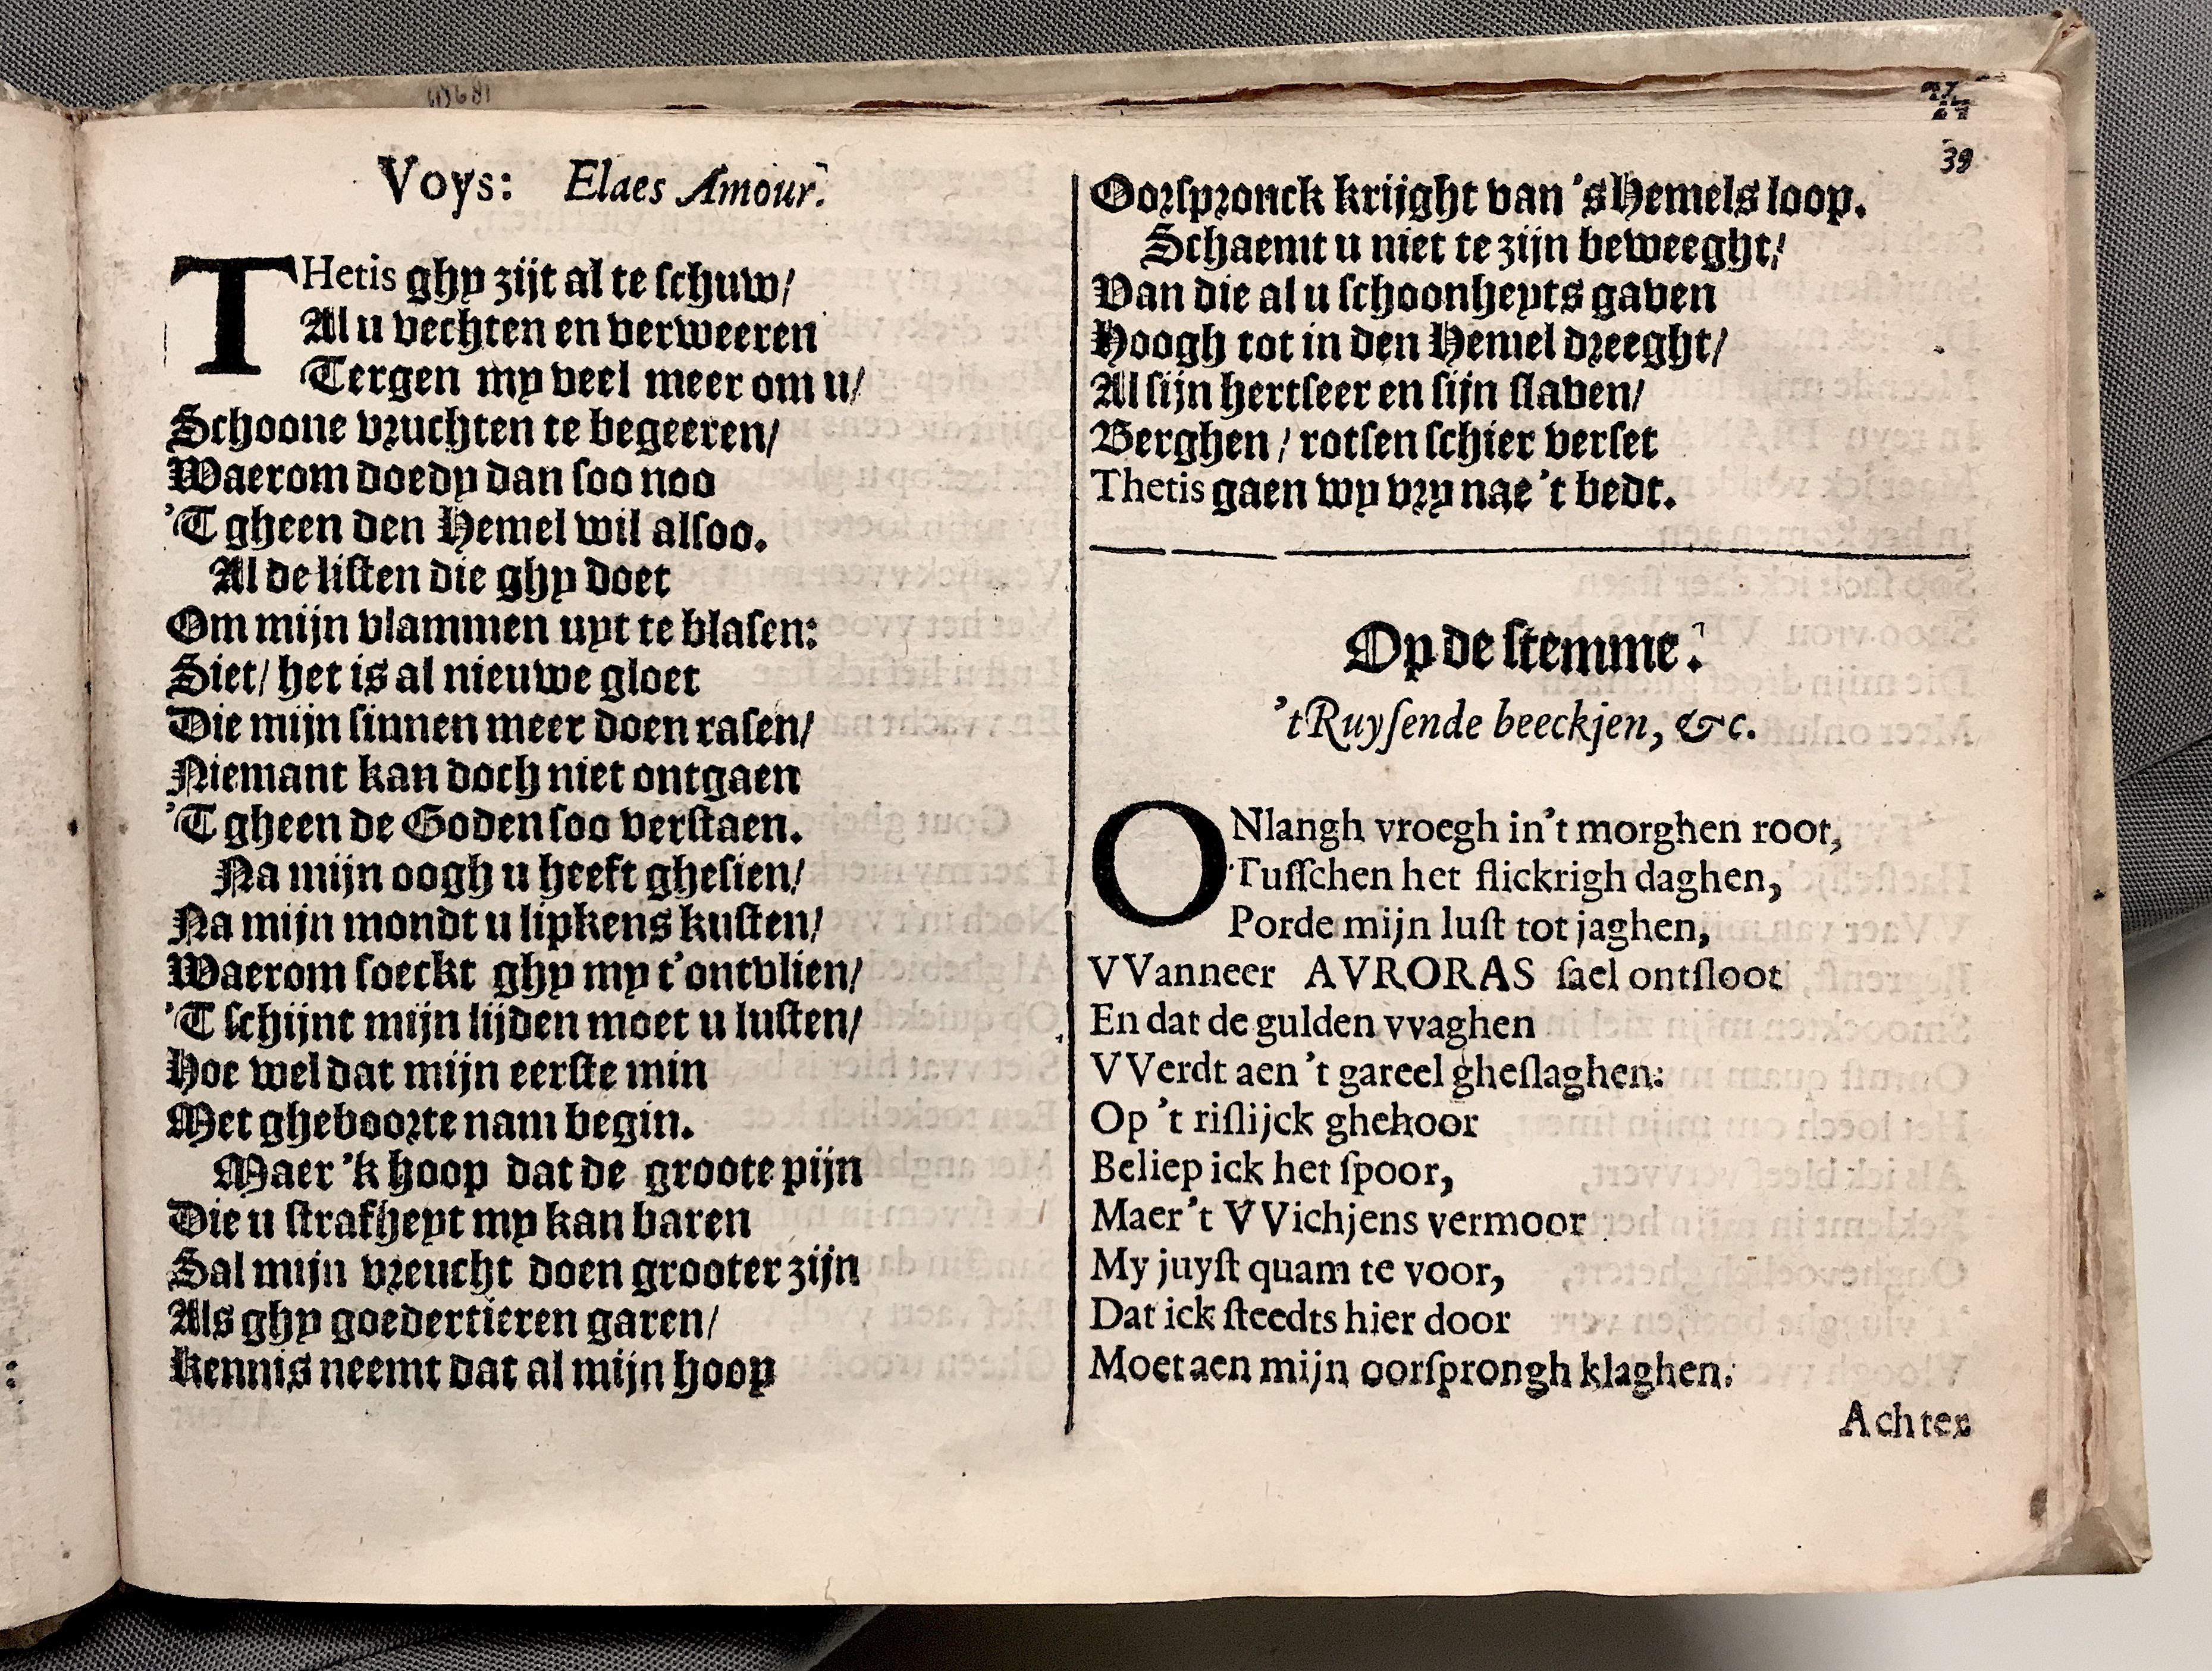 Voys: Elaes Amour.
THetis ghy zijt al te schuw/
Al u vechten en verweeren
Tergen my veel meer om u/
Schoone vruchten te begeeren/
Waerom doedy dan soo noo
'T gheen den Hemel wil alsoo.
Al de listen die ghy doet
Om mijn vlammen uyt te blasen:
Siet/ het is al nieuwe gloet
Die mijn sinnen meer doen rasen/
Niemant kan doch niet ontgaen
'T gheen de Goden soo verstaen.
Na mijn oogh u heeft ghesien/
Na mijn mondt u lipkens kusten/
Waerom soeckt ghy my t'ontvlien/
'T schijnt mijn lijden moet u lusten/
Hoe wel dat mijn eerste min
Met gheboorte nam begin.
Maer 'k hoop dat de groote pijn
Die u strafheyt my kan baren
Sal mijn vreucht doen grooter zijn
Als ghy goedertieren garen/
Kennis neemt dat al mijn hoop
39
Oorspronck krijght van 's Hemels loop.
Schaemt u niet te zijn beweeght/
Van die al u schoonheyts gaven
Hoogh tot in den Hemel dreeght/
Al sijn hertseer en sijn slaven/
Berghen / rotsen schier verset
Thetis gaen wy vry nae 't bedt.
Op de stemme:
't Ruysende beeckjen, &c.
ONlangh vroegh in't morghen root,
Tusschen het flickrigh daghen,
Porde mijn lust tot jaghen,
VVanneer AVRORAS sael ontsloot
En dat de gulden vvaghen
VVerdt aen 't gareel gheslaghen:
Op 't rislijck ghehoor
Beliep ick het spoor,
Maer 't VVichjens vermoor
My juyst quam te voor,
Dat ick steedts hier door
Moet aen mijn oorsprongh klaghen.
Achter